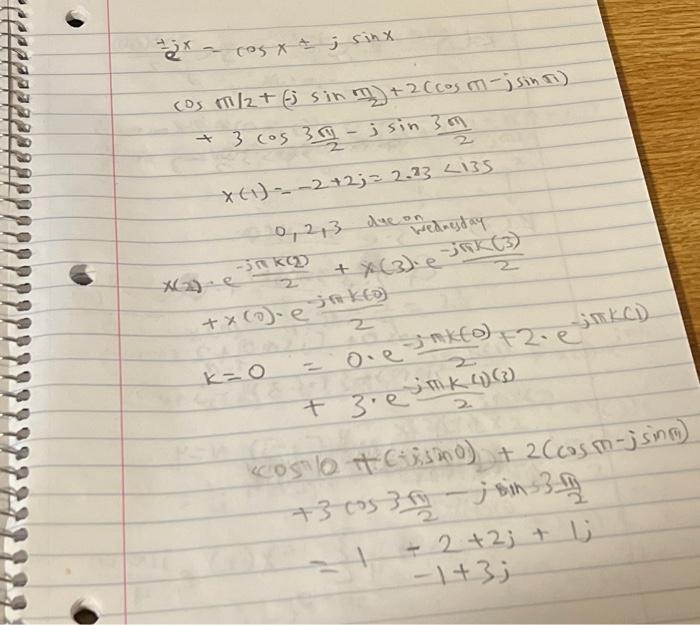 e^{±jx} = cos x ± j sin x
cos π/2 + (-j sin π/2) + 2(cos π - j sin π)
+ 3 cos 3π/2 - j sin 3π/2
x(1) = -2+2j = 2.83 <135
0, 2, 3 due on wednesday
x(2)·e^{-jπk(2)/2} + x(3)·e^{-jπk(3)/2}
+ x(0)·e^{-jπk(0)/2}
k=0 = 0·e^{-jπk(0)/2} + 2·e^{-jπk(1)}
+ 3·e^{-jπk(1)(3)/2}
cos 0 + (-j sin 0) + 2(cos π - j sin π)
+3 cos 3π/2 - j sin 3π/2
= 1 - 2 + 2j + 1j
-1+3j